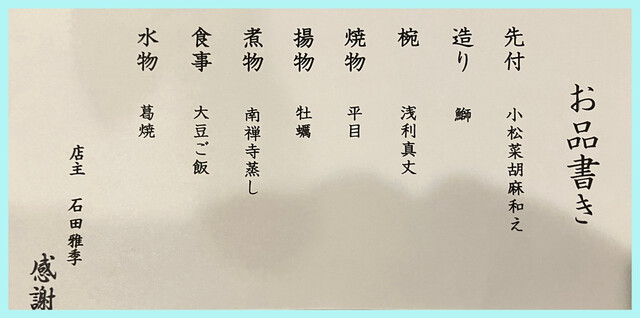 お品書き
先付　小松菜胡麻和え
造り　鰤
椀　浅利真丈
焼物　平目
揚物　牡蠣
煮物　南禅寺蒸し
食事　大豆ご飯
水物　葛焼
店主　石田雅季
感謝